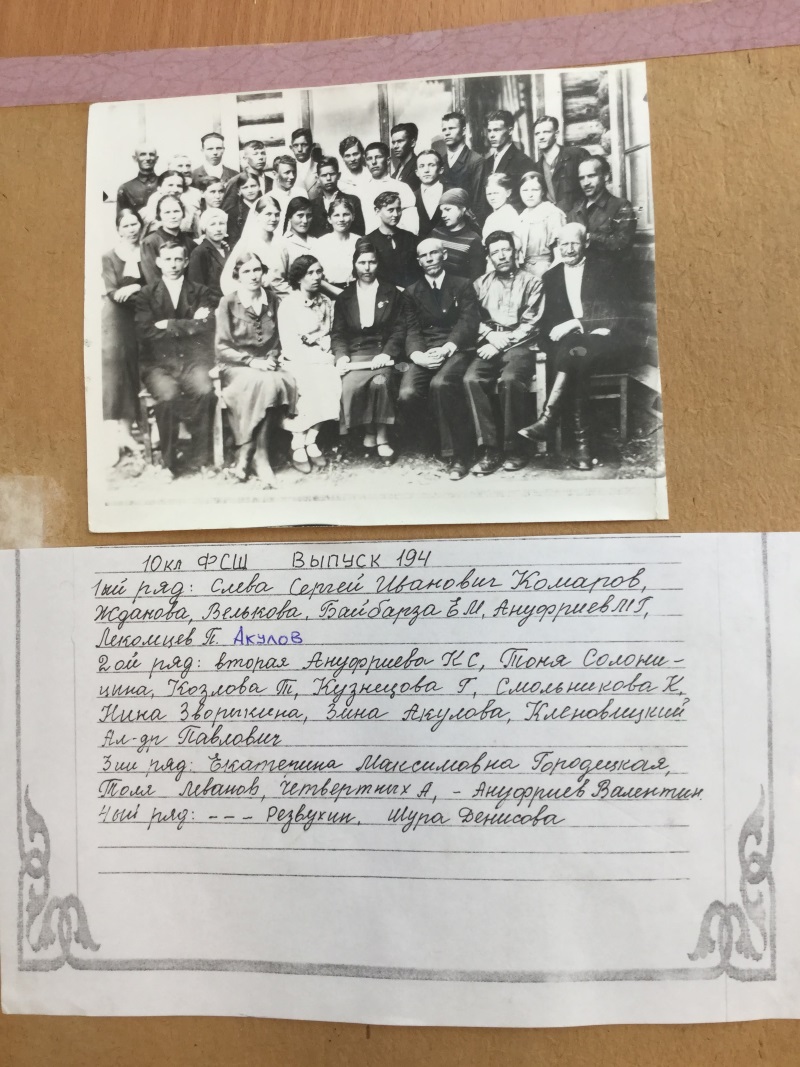 10кл ФСШ ВЫПУСК 194
1ый ряд: Слева Сергей Иванович Комаров,
Жданова, Велькова, Байбарза Е М, Ануфриев М Г,
Лекомцев П. Акулов
2ой ряд: вторая Ануфриева К С, Тоня Солони-
цина, Козлова Т, Кузнецова Г, Смольникова К,
Нина Зворыкина, Зина Акулова, Кленовицкий
Ал-др Павлович
3ий ряд: Екатерина Максимовна Городецкая,
Толя Леванов, Четвертных А, - Ануфриев Валентин.
4ый ряд: --- Резвухин, Шура Денисова